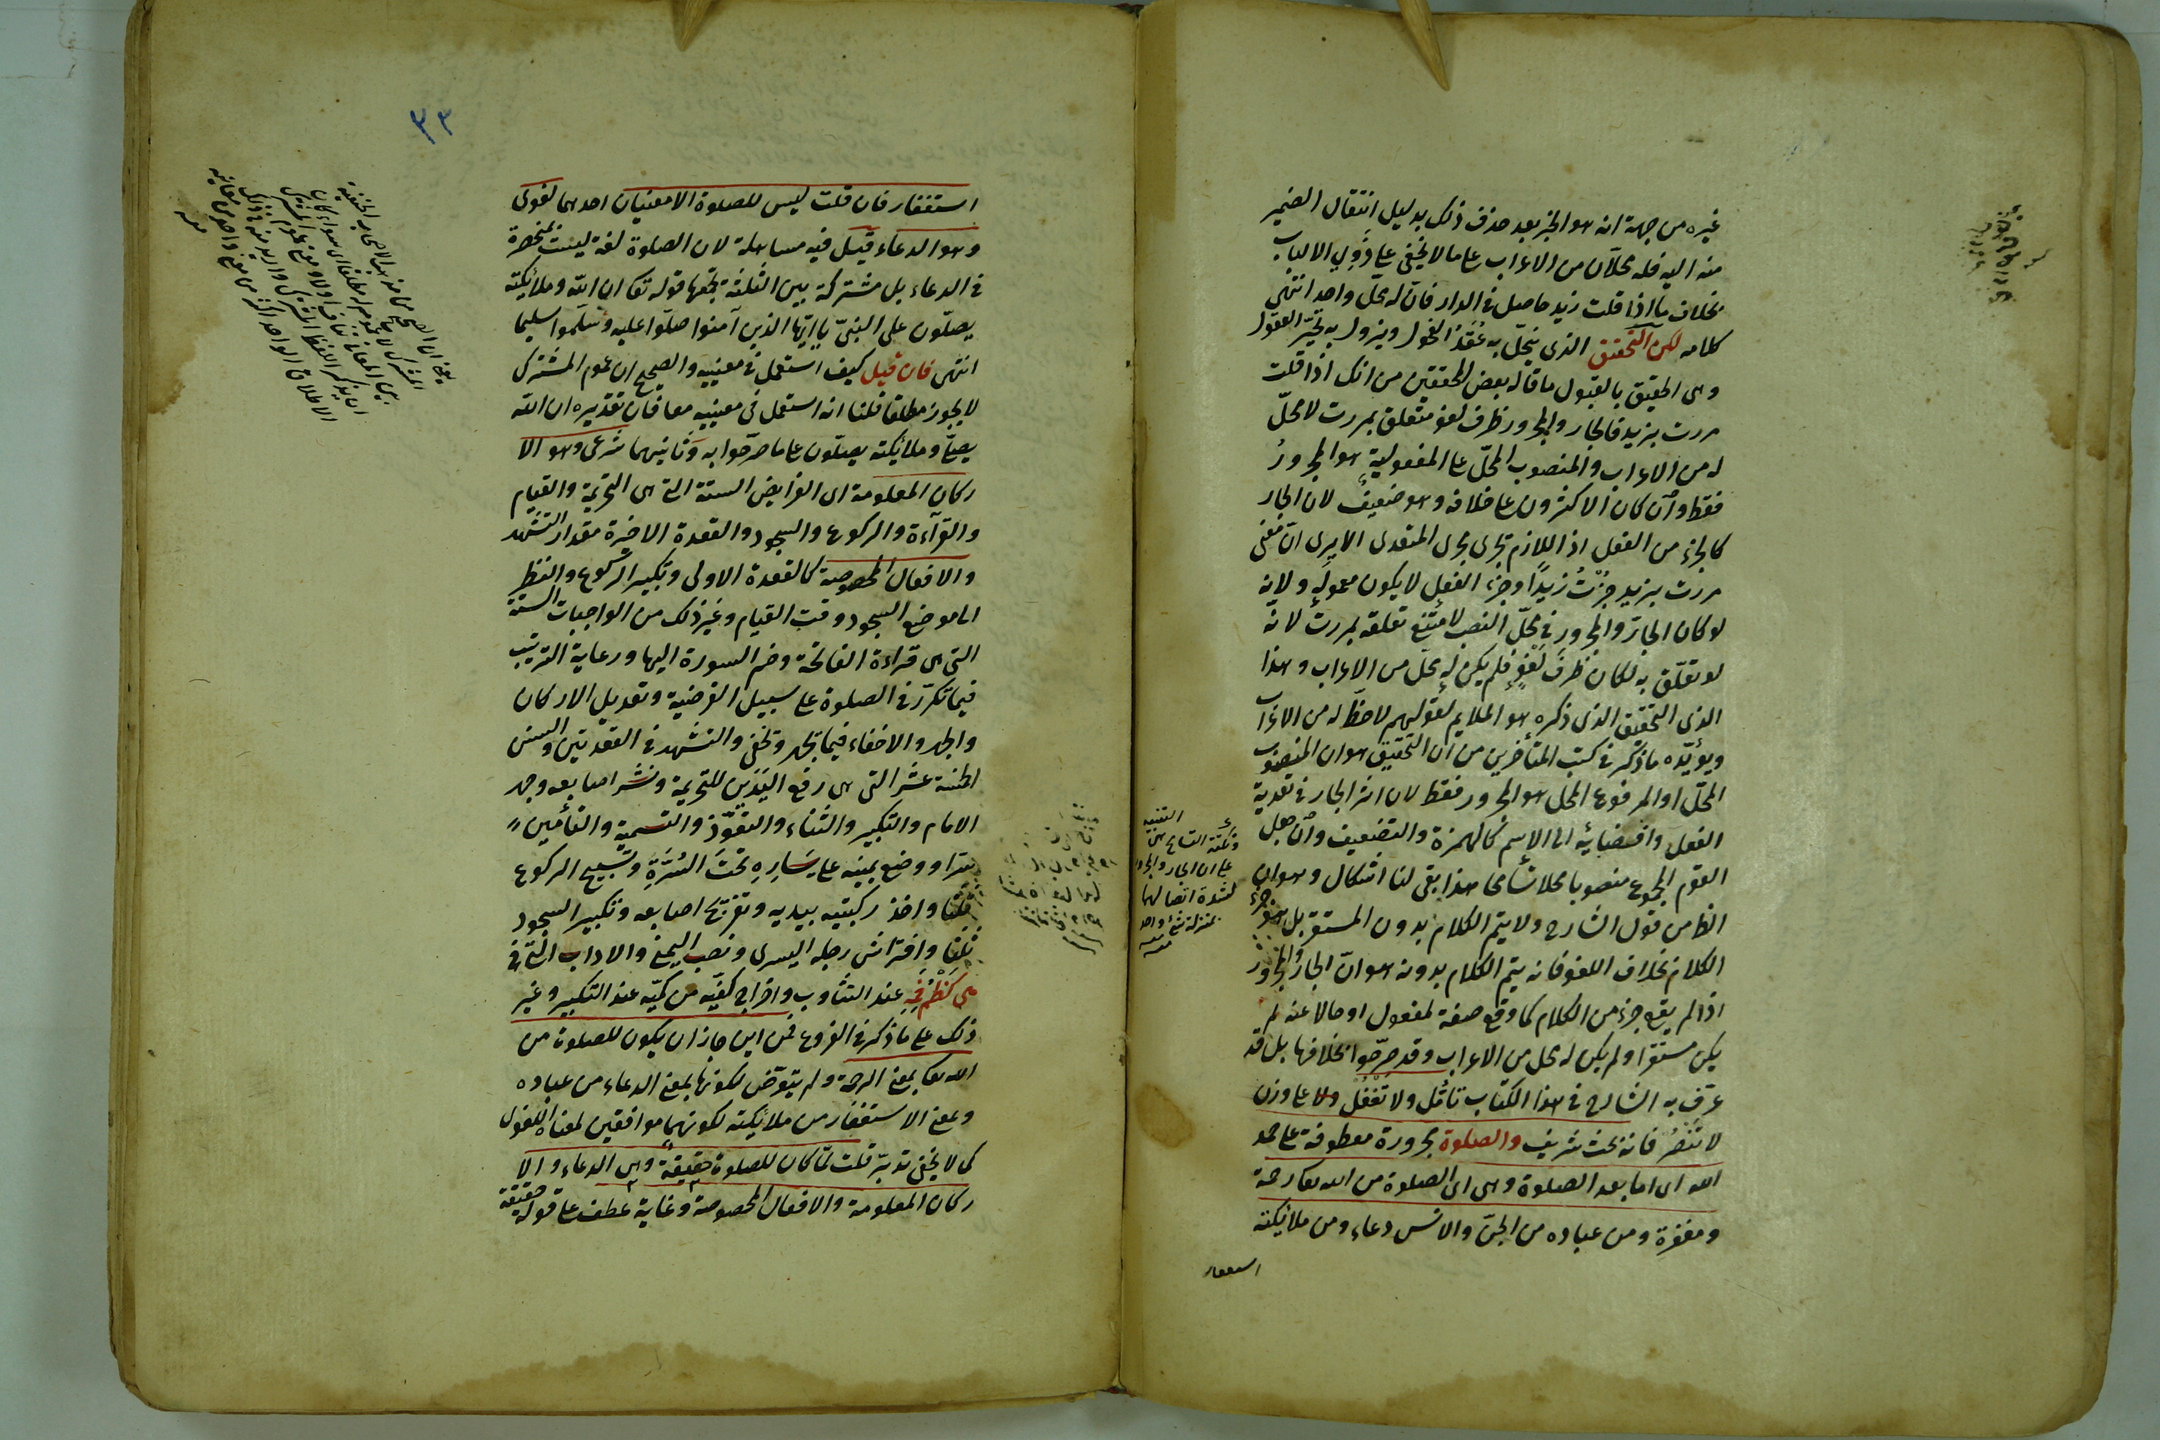 غيره من جهة انه هو الخبر بعد حذف ذلك بدليل انتقال الضمير
منه اليه فله محلّان من الاعراب على ما لا يخفى على ذوي الالباب
بخلاف ما اذا قلت زيد حاصل في الدار فانّ له محلّ واحد انتهى
كلامه لكن التحقيق الذي ينحلّ به عُقَدُ الفحول ويزول به تحيّر العقول
وهي الحقيق بالقبول ما قاله بعض المحققين من انك اذا قلت
مررت بزيد فالجار والمجرور ظرف لغو متعلق بمررت لا محلّ
له من الاعراب والمنصوب المحلّ على المفعولية هو المجرورُ
فقط وان كان الاكثرون على خلافه وهو ضعيف لان الجار
كالجزء من الفعل اذ اللازم تجرى مجرى المتعدى الا يرى انّ معنى
مررت بزيد جُزْتُ زيدًا وجزء الفعل لا يكون معموله ولانه
لو كان الجارّ والمجرور في محلّ النصب لامتنع تعلقه بمررت لانّه
لو تعلّق به لكان ظرف لغوٍ فلم يكن له محلّ من الاعراب وهذا
الذى التحقيق الذى ذكره هو الملايم لقولهم لاحظّ له من الاعراب
ويؤيّده ما ذكر في كتب المتأخرين من انّ التحقيق هو ان المنصوب
المحلّ او المرفوع المحل هو المجرور فقط لان اثر الجار في تعدية
الفعل وافضائه الى الاسم كالهمزة والتضعيف وان جعل
القوم المجموع منصوبا محلا تسامحا هذا بقى لنا اشكال وهو ان
الظ من قول الشارح ولا يتم الكلام بدون المستقر بل هو جزء
الكلام بخلاف اللغو فانه يتم الكلام بدونه هو انّ الجارّ والمجرور
اذا لم يقع جزء من الكلام كما وقع صفة لمفعول او حالا عنه لم
يكن مستقرا ولم يكن له محل من الاعراب وقد صرّحوا بخلافها بل قد
عرّف به الشارح في هذا الكتاب تأمّل ولا تغفل ولا على وزن
لا تَنْصُرْ فانه بحث شريف والصلوة مجرورة معطوفة على حمد
الله اى اما بعد الصلوة وهى اى الصلوة من الله تعا رحمة
ومغفرة ومن عباده من الجنّ والانس دعاء ومن ملائكته
استغفار
التنبيه
ونكتة التسامح هى
على ان الجار والمجرور
لشدة اتصالهما
بمنزلة شئ واحد
منه
٣٣
استغفار فان قلت ليس للصلوة الا معنيان احدهما لغوى
وهو الدعاء قيل فيه مساهلة لان الصلوة لغة ليست بمنحصرة
في الدعاء بل مشتركة بين الثلثة بجمعها قوله تعا ان اللّه وملائكته
يصلّون على النبىّ يا ايّها الذين آمنوا صلّوا عليه وسلّموا تسليما
انتهى فان قيل كيف استعمل في معنييه والصحيح ان عموم المشترك
لا يجوز مطلقا قلنا انه استعمل فى معنييه معا فان تقديره ان اللّه
يصلّى وملائكته يصلّون على ما صرّحوا به وثانيهما شرعى وهو الا
ركان المعلومة اى الفرايض الستة التى هى التحريمة والقيام
والقرآءة والركوع والسجود والقعدة الاخيرة مقدار التشهد
والافعال المخصوصة كالقعدة الاولى وتكبير الركوع والنظر
الى موضع السجود وقت القيام وغير ذلك من الواجبات الستة
التى هى قراءة الفاتحة وضم السورة اليها ورعاية الترتيب
فيما تكرّر في الصلوة على سبيل الفرضية وتعديل الاركان
والجهر والاخفاء فيما يجهر ويخفى والتشهد في القعدتين والسنن
الخمسة عشر التى هى رفع اليدين للتحريمة ونشر اصابعه وجهر
الامام والتكبير والثناء والتعوّذ والتسمية والتأمين
سرّا ووضع يمينه على يَسَارِهِ تحت السُّرَّةِ وتسبيح الركوع
ثلثا واخذ ركبتيه بيديه وتفريج اصابعه وتكبير السجود
ثلثا وافتراش رجله اليسرى ونصب اليمنى والاداب التى
هى كَظْمُ فَمِهِ عند التثاوب واخراج كفّيه من كمّيه عند التكبير وغير
ذلك على ما ذكر في الفروع فمن اين جاز ان يكون للصلوة من
الله تعا بمعنى الرحمة ولم يتعرّض لكونها بمعنى الدعاء من عباده
وبمعنى الاستغفار من ملائكته لكونهما موافقين لمعناه اللغوى
كما لا يخفى تدبّر قلت لمّا كان للصلوة حقيقة وهى الدعاء والا
ركان المعلومة والافعال المخصوصة وغاية عطف على قوله حقيقة